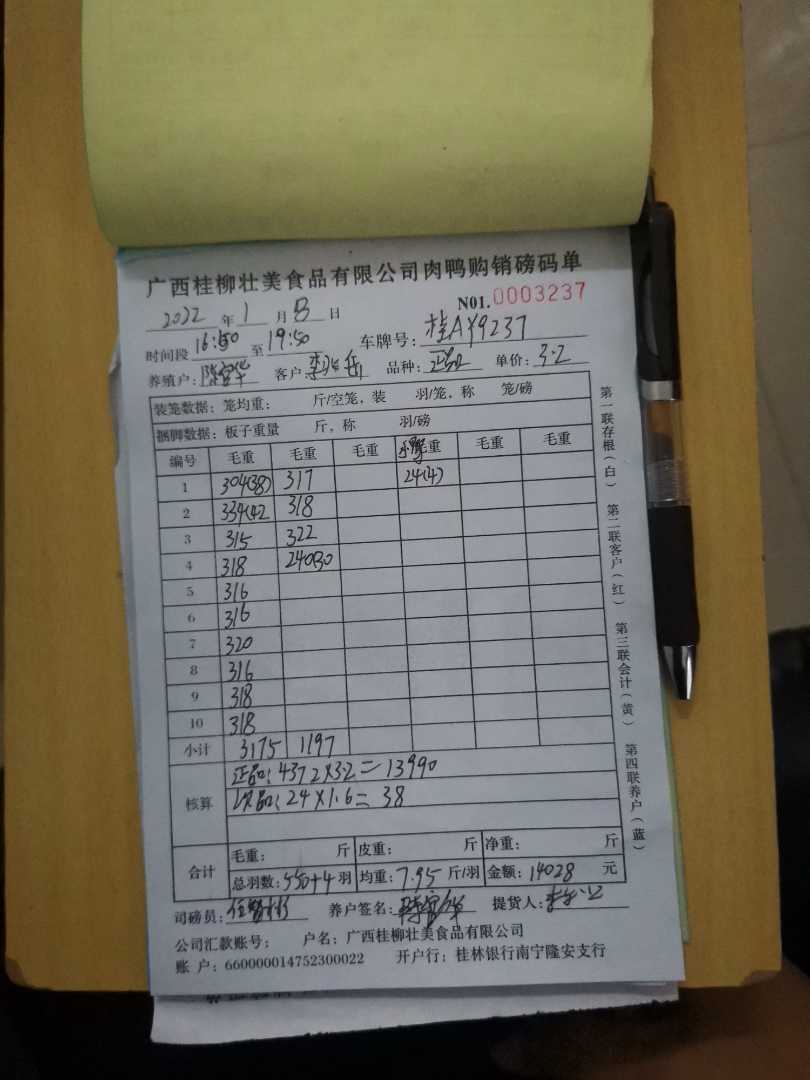 广西桂柳壮美食品有限公司肉鸭购销磅码单
NO1.0003237
2022 年 1 月 13 日
时间段 16:50 至 19:50 车牌号: 桂AY9237
养殖户: 陈 华 客户: 李 岳 品种: 正品 单价: 3.2
装笼数据: 笼均重: 斤/空笼, 装 羽/笼, 称 笼/磅
捆脚数据: 板子重量 斤, 称 羽/磅
编号 毛重 毛重 毛重 毛重 毛重 毛重
1 304(38) 317 24(4)
2 334(42 318
3 315 322
4 318 240(30
5 316
6 316
7 320
8 316
9 318
10 318
小计 3175 1197
核算 正品: 4372×3.2=13990
次品: 24×1.6=38
合计 毛重: 斤 皮重: 斤 净重: 斤
总羽数: 550+4 羽 均重: 7.95 斤/羽 金额: 14028 元
司磅员: 养户签名: 陈 华 提货人: 李
公司汇款账号: 户名: 广西桂柳壮美食品有限公司
账 户: 660000014752300022 开户行: 桂林银行南宁隆安支行
第一联存根(白) 第二联客户(红) 第三联会计(黄) 第四联养户(蓝)